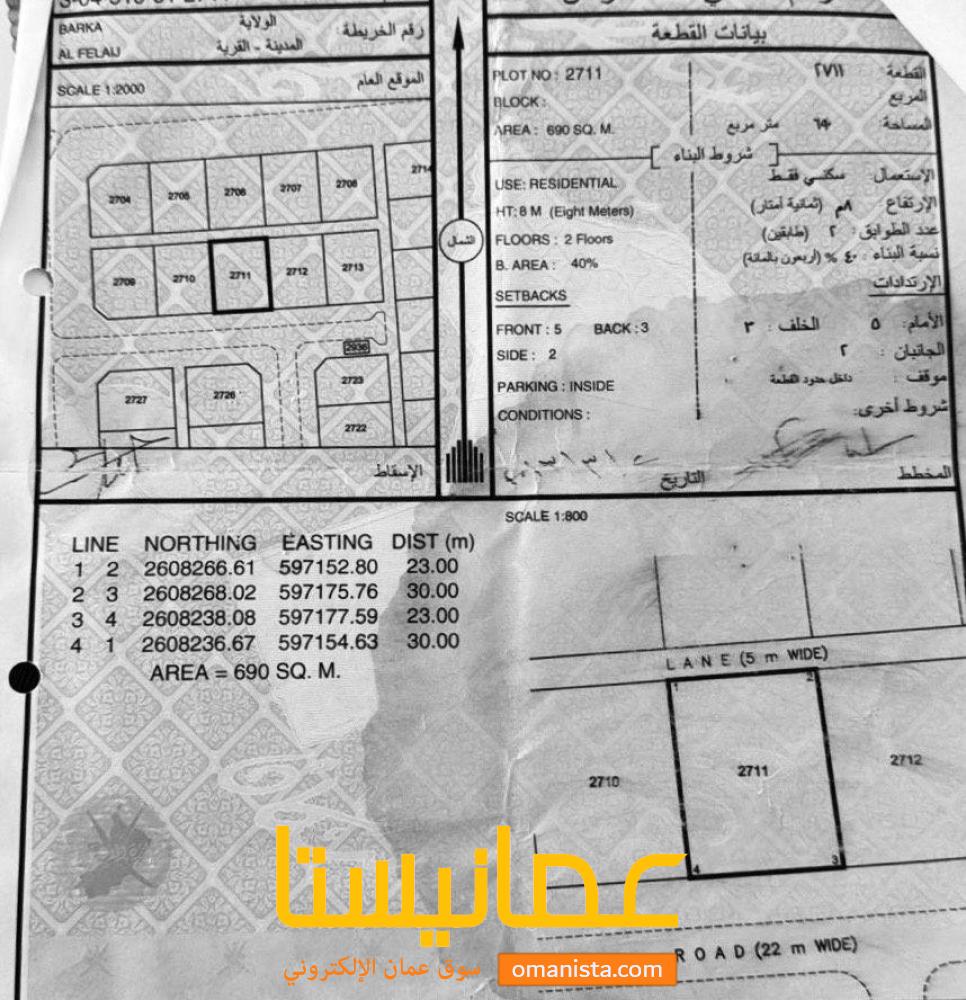 BARKA
الولاية
AL FELAIJ
المدينة - القرية
رقم الخريطة:
SCALE 1:2000
الموقع العام
2704 2705 2706 2707 2708 2714
2709 2710 2711 2712 2713
2936
2727 2726 2723
2722
الإسقاط
الشمال
بيانات القطعة
PLOT NO : 2711
القطعة: ٢٧١١
BLOCK :
المربع
AREA : 690 SQ. M.
المساحة: ٦٩٠ متر مربع
[ شروط البناء ]
USE: RESIDENTIAL
الإستعمال سكني فقط
HT: 8 M (Eight Meters)
الإرتفاع ٨م (ثمانية أمتار)
FLOORS : 2 Floors
عدد الطوابق: ٢ (طابقين)
B. AREA : 40%
نسبة البناء : ٤٠ % (أربعون بالمائة)
SETBACKS
الإرتدادات
FRONT : 5 BACK : 3
الأمام: ٥ الخلف : ٣
SIDE : 2
الجانبان : ٢
PARKING : INSIDE
موقف : داخل حدود القطعة
CONDITIONS :
شروط أخرى:
التاريخ
المخطط
SCALE 1:800
LINE NORTHING EASTING DIST (m)
1 2 2608266.61 597152.80 23.00
2 3 2608268.02 597175.76 30.00
3 4 2608238.08 597177.59 23.00
4 1 2608236.67 597154.63 30.00
AREA = 690 SQ. M.
LANE (5 m WIDE)
1 2
2710 2711 2712
4 3
ROAD (22 m WIDE)
عمانيستا
سوق عمان الإلكتروني omanista.com